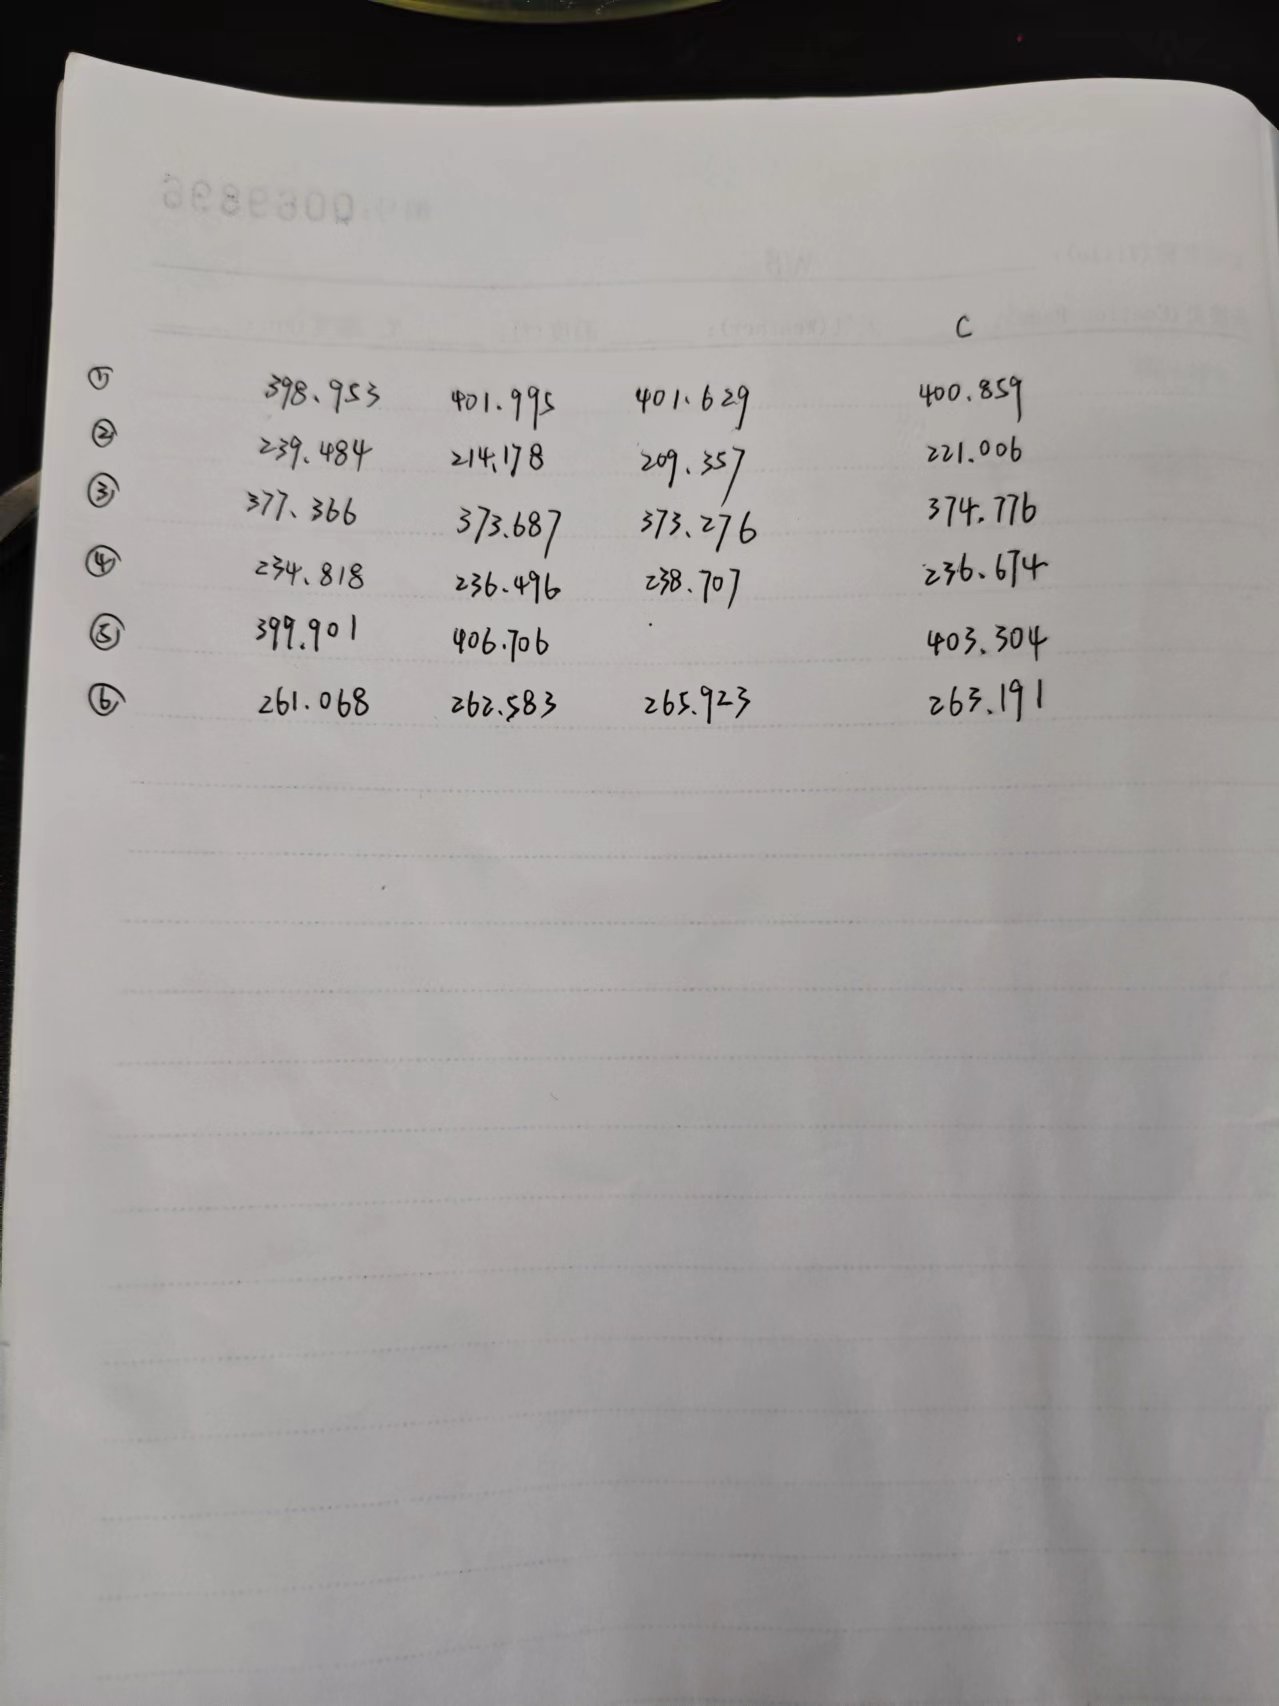 C
① 398.953 401.995 401.629 400.859
② 239.484 214.178 209.357 221.006
③ 377.366 373.687 373.276 374.776
④ 234.818 236.496 238.707 236.674
⑤ 399.901 406.706 403.304
⑥ 261.068 262.583 265.923 263.191